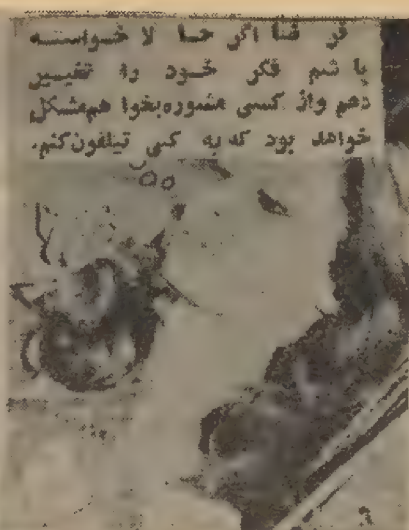 فر ضا اگر حا لا خواسته
با شم فکر خود را تغییر
دهم واز کسی مشوره بخوا هم مشکل
خواهد بود که به کی تیلفون کنم.